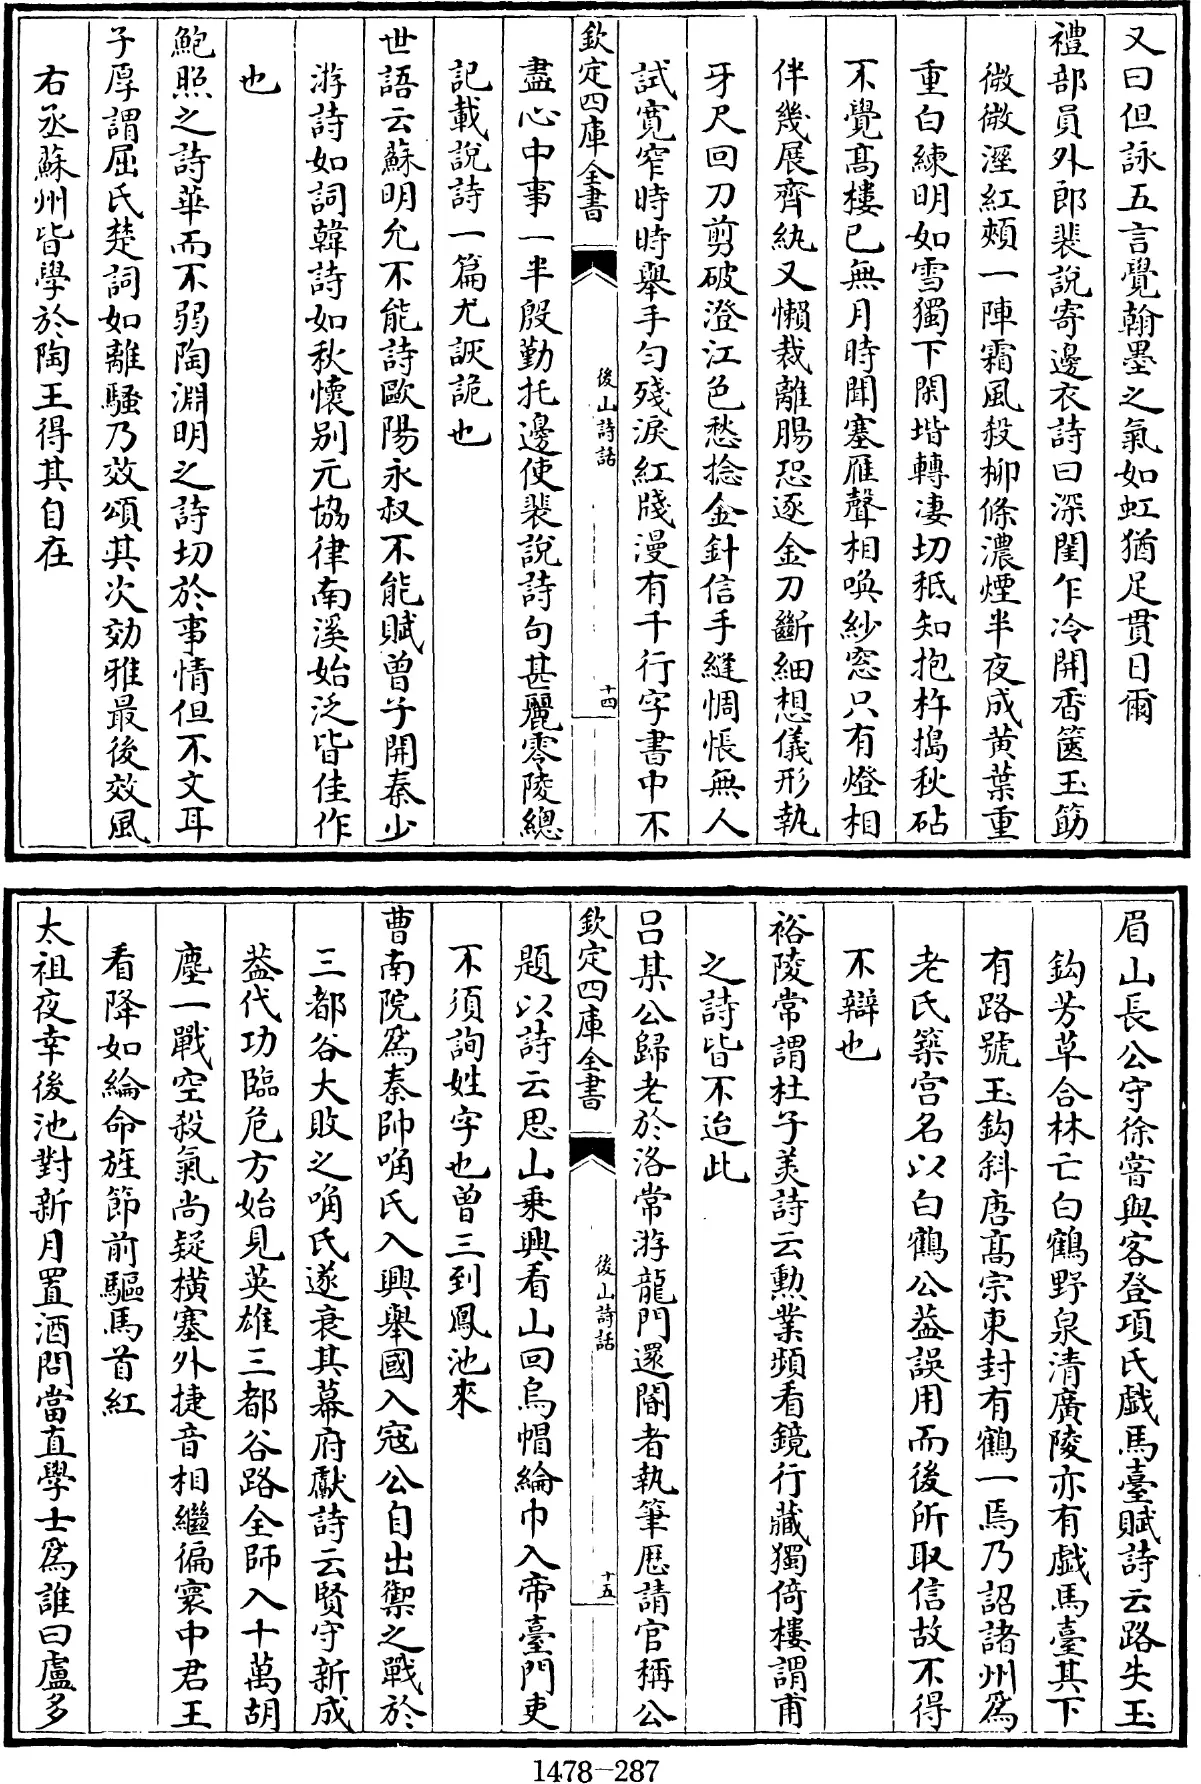 又曰但詠五言覺翰墨之氣如虹猶足貫日爾
禮部員外郎裴說寄邊衣詩曰深閨乍冷開香篋玉筯
微微溼紅頰一陣霜風殺柳條濃煙半夜成黄葉重
重白練明如雪獨下閑堦轉凄切秪知抱杵搗秋砧
不覺髙樓已無月時聞塞雁聲相喚紗窓只有燈相
伴幾展齊紈又懶裁離腸恐逐金刀斷細想儀形執
牙尺回刀剪破澄江色愁捻金針信手縫惆悵無人
試寛窄時時舉手匀殘淚紅牋漫有千行字書中不
欽定四庫全書
後山詩話
十四
盡心中事一半殷勤托邊使裴說詩句甚麗零陵總
記載說詩一篇尤詼詭也
世語云蘇明允不能詩歐陽永叔不能賦曾子開秦少
游詩如詞韓詩如秋懷别元協律南溪始泛皆佳作
也
鮑照之詩華而不弱陶淵明之詩切於事情但不文耳
子厚謂屈氏楚詞如離騷乃效頌其次効雅最後效風
右丞蘇州皆學於陶王得其自在
眉山長公守徐嘗與客登項氏戯馬臺賦詩云路失玉
鈎芳草合林亡白鶴野泉清廣陵亦有戯馬臺其下
有路號玉鈎斜唐髙宗東封有鶴一焉乃詔諸州爲
老氏築宫名以白鶴公葢誤用而後所取信故不得
不辯也
裕陵常謂杜子美詩云勲業頻看鏡行藏獨倚樓謂甫
之詩皆不迨此
吕某公歸老於洛常游龍門還閽者執筆厯請官稱公
欽定四庫全書
後山詩話
十五
題以詩云思山乗興看山回烏帽綸巾入帝臺門吏
不須詢姓字也曾三到鳳池來
曹南院爲秦帥唃氏入興舉國入寇公自出禦之戰於
三都谷大敗之唃氏遂衰其幕府獻詩云賢守新成
葢代功臨危方始見英雄三都谷路全師入十萬胡
塵一戰空殺氣尚疑横塞外捷音相繼徧寰中君王
看降如綸命旌節前驅馬首紅
太祖夜幸後池對新月置酒問當直學士爲誰曰盧多
1478—287